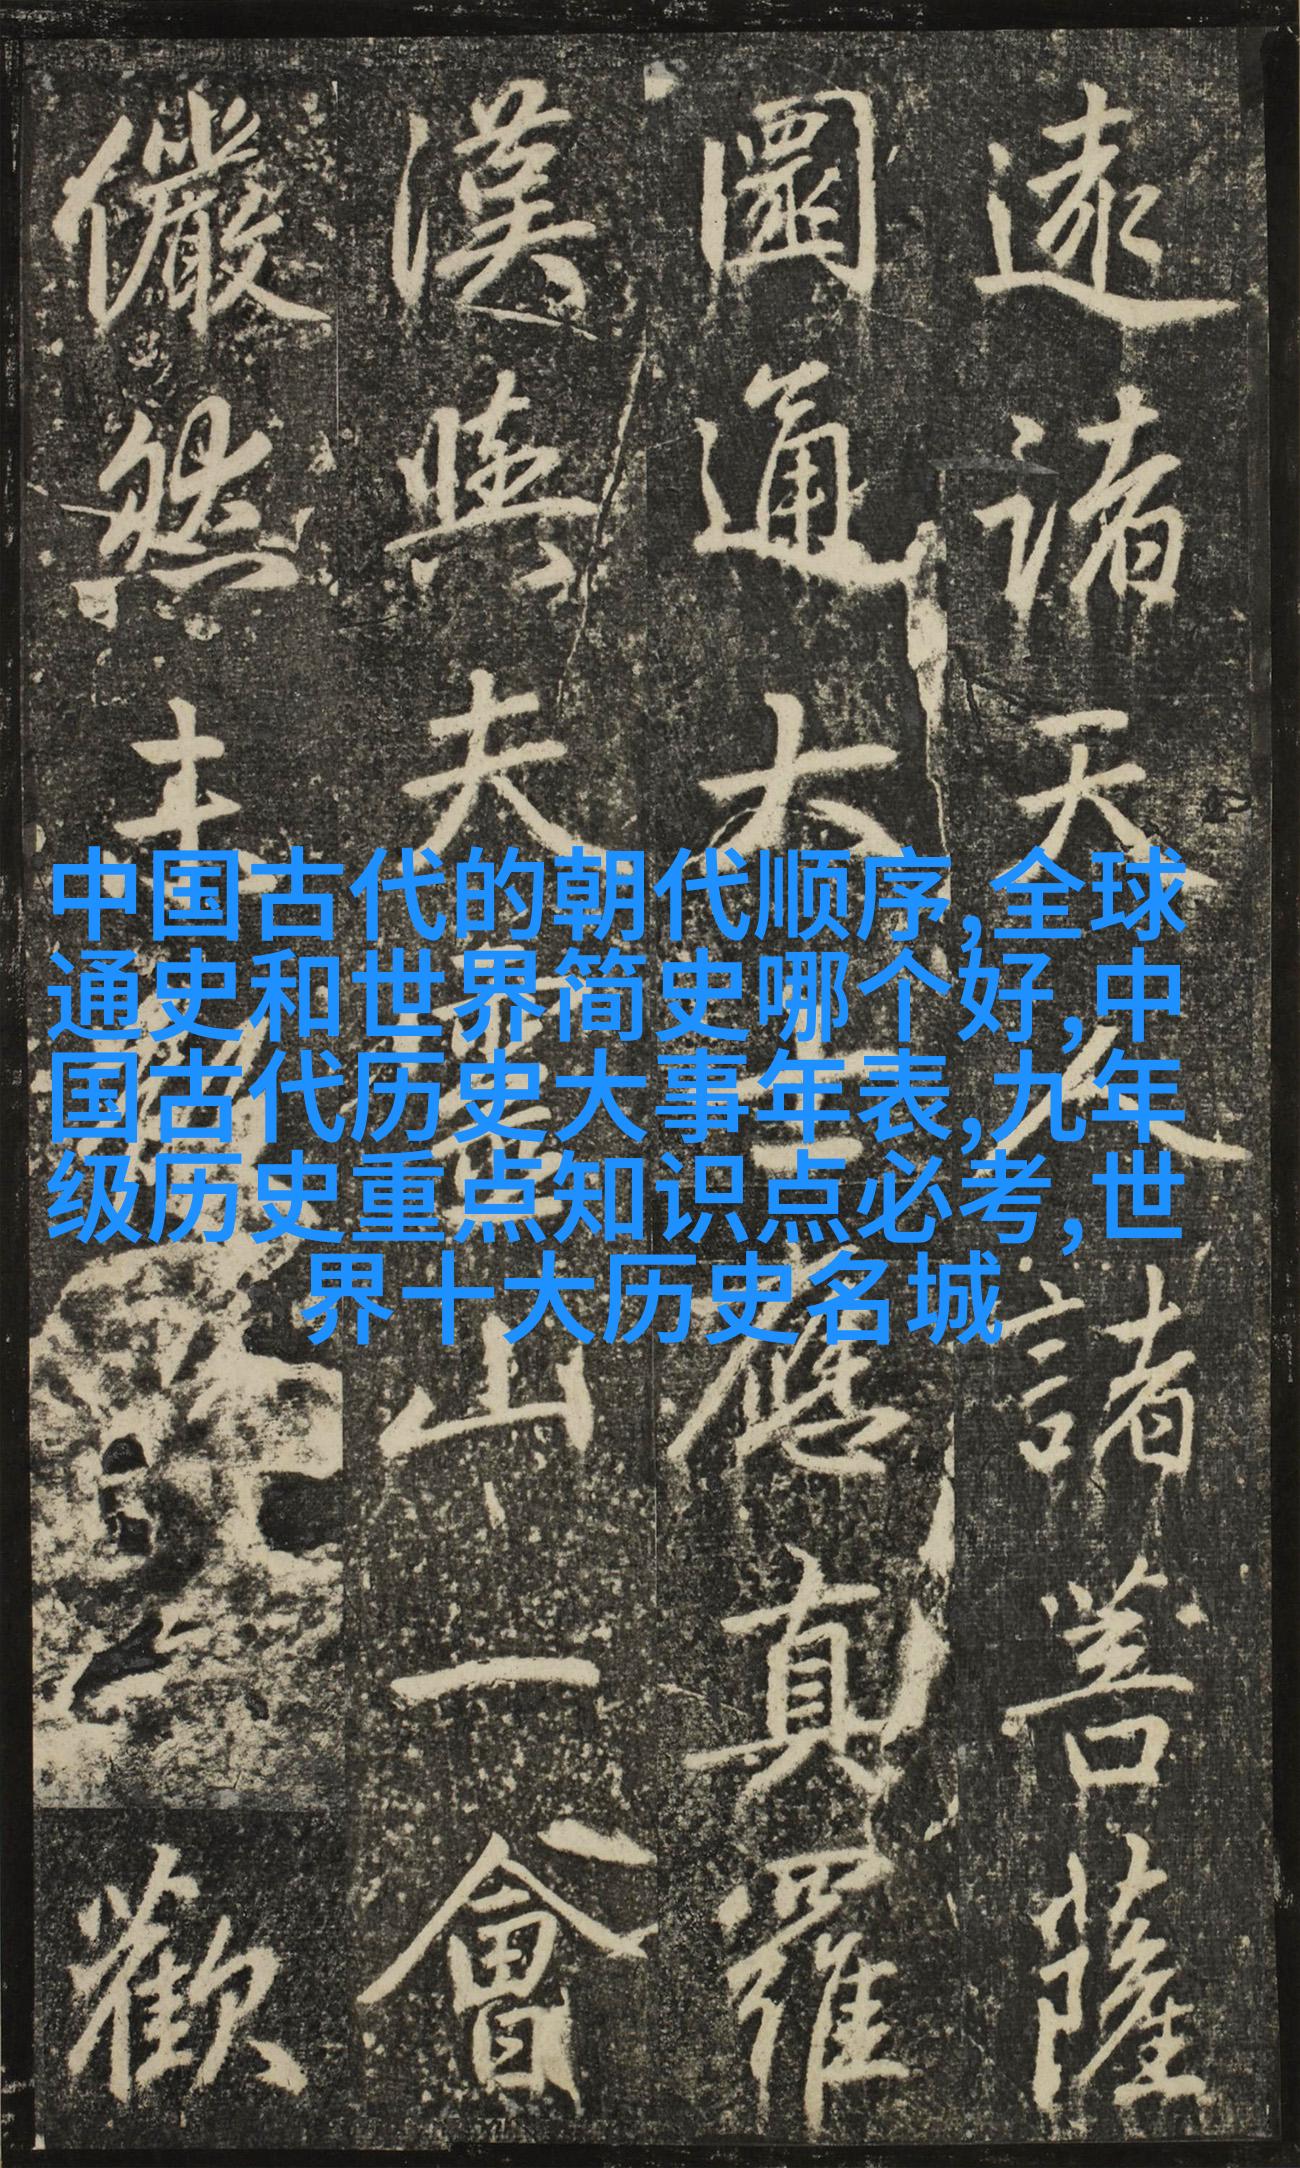 中国古代的朝代顺序,全球
通史和世界简史哪个好,中
国古代历史大事年表,九年
级历史重点知识点必考,世
界十大历史名城
遠諸天人諸菩薩
圓通大士應真羅
漢與夫靈山一會
儼然歡